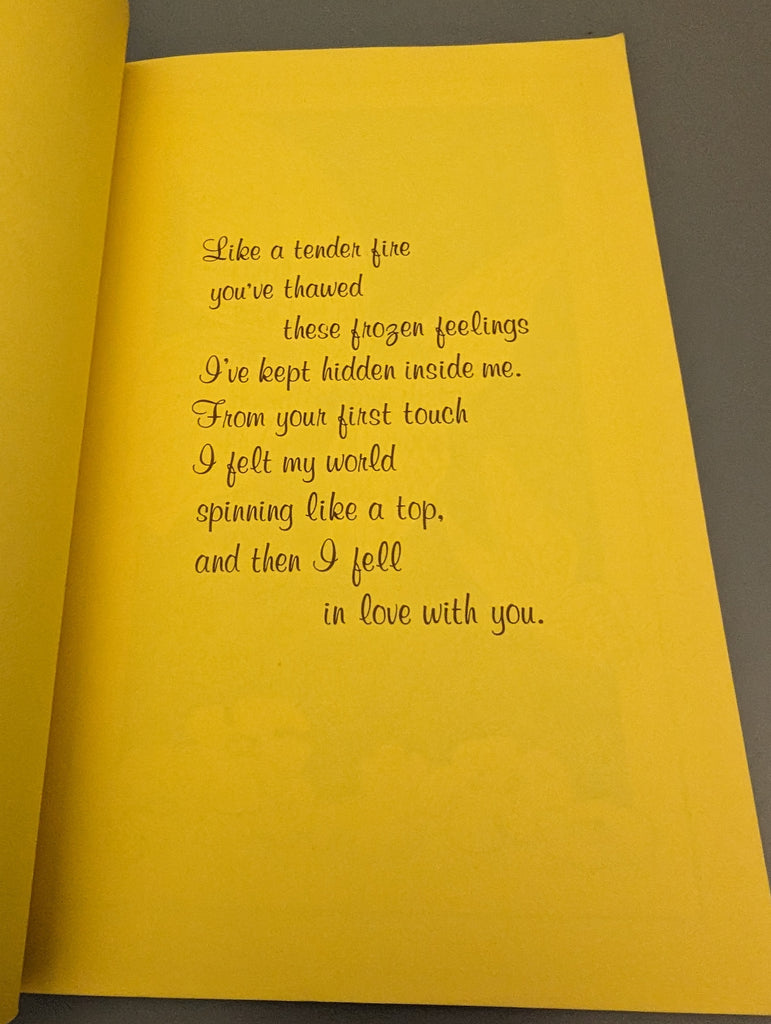 Like a tender fire
you've thawed
these frozen feelings
I've kept hidden inside me.
From your first touch
I felt my world
spinning like a top,
and then I fell
in love with you.